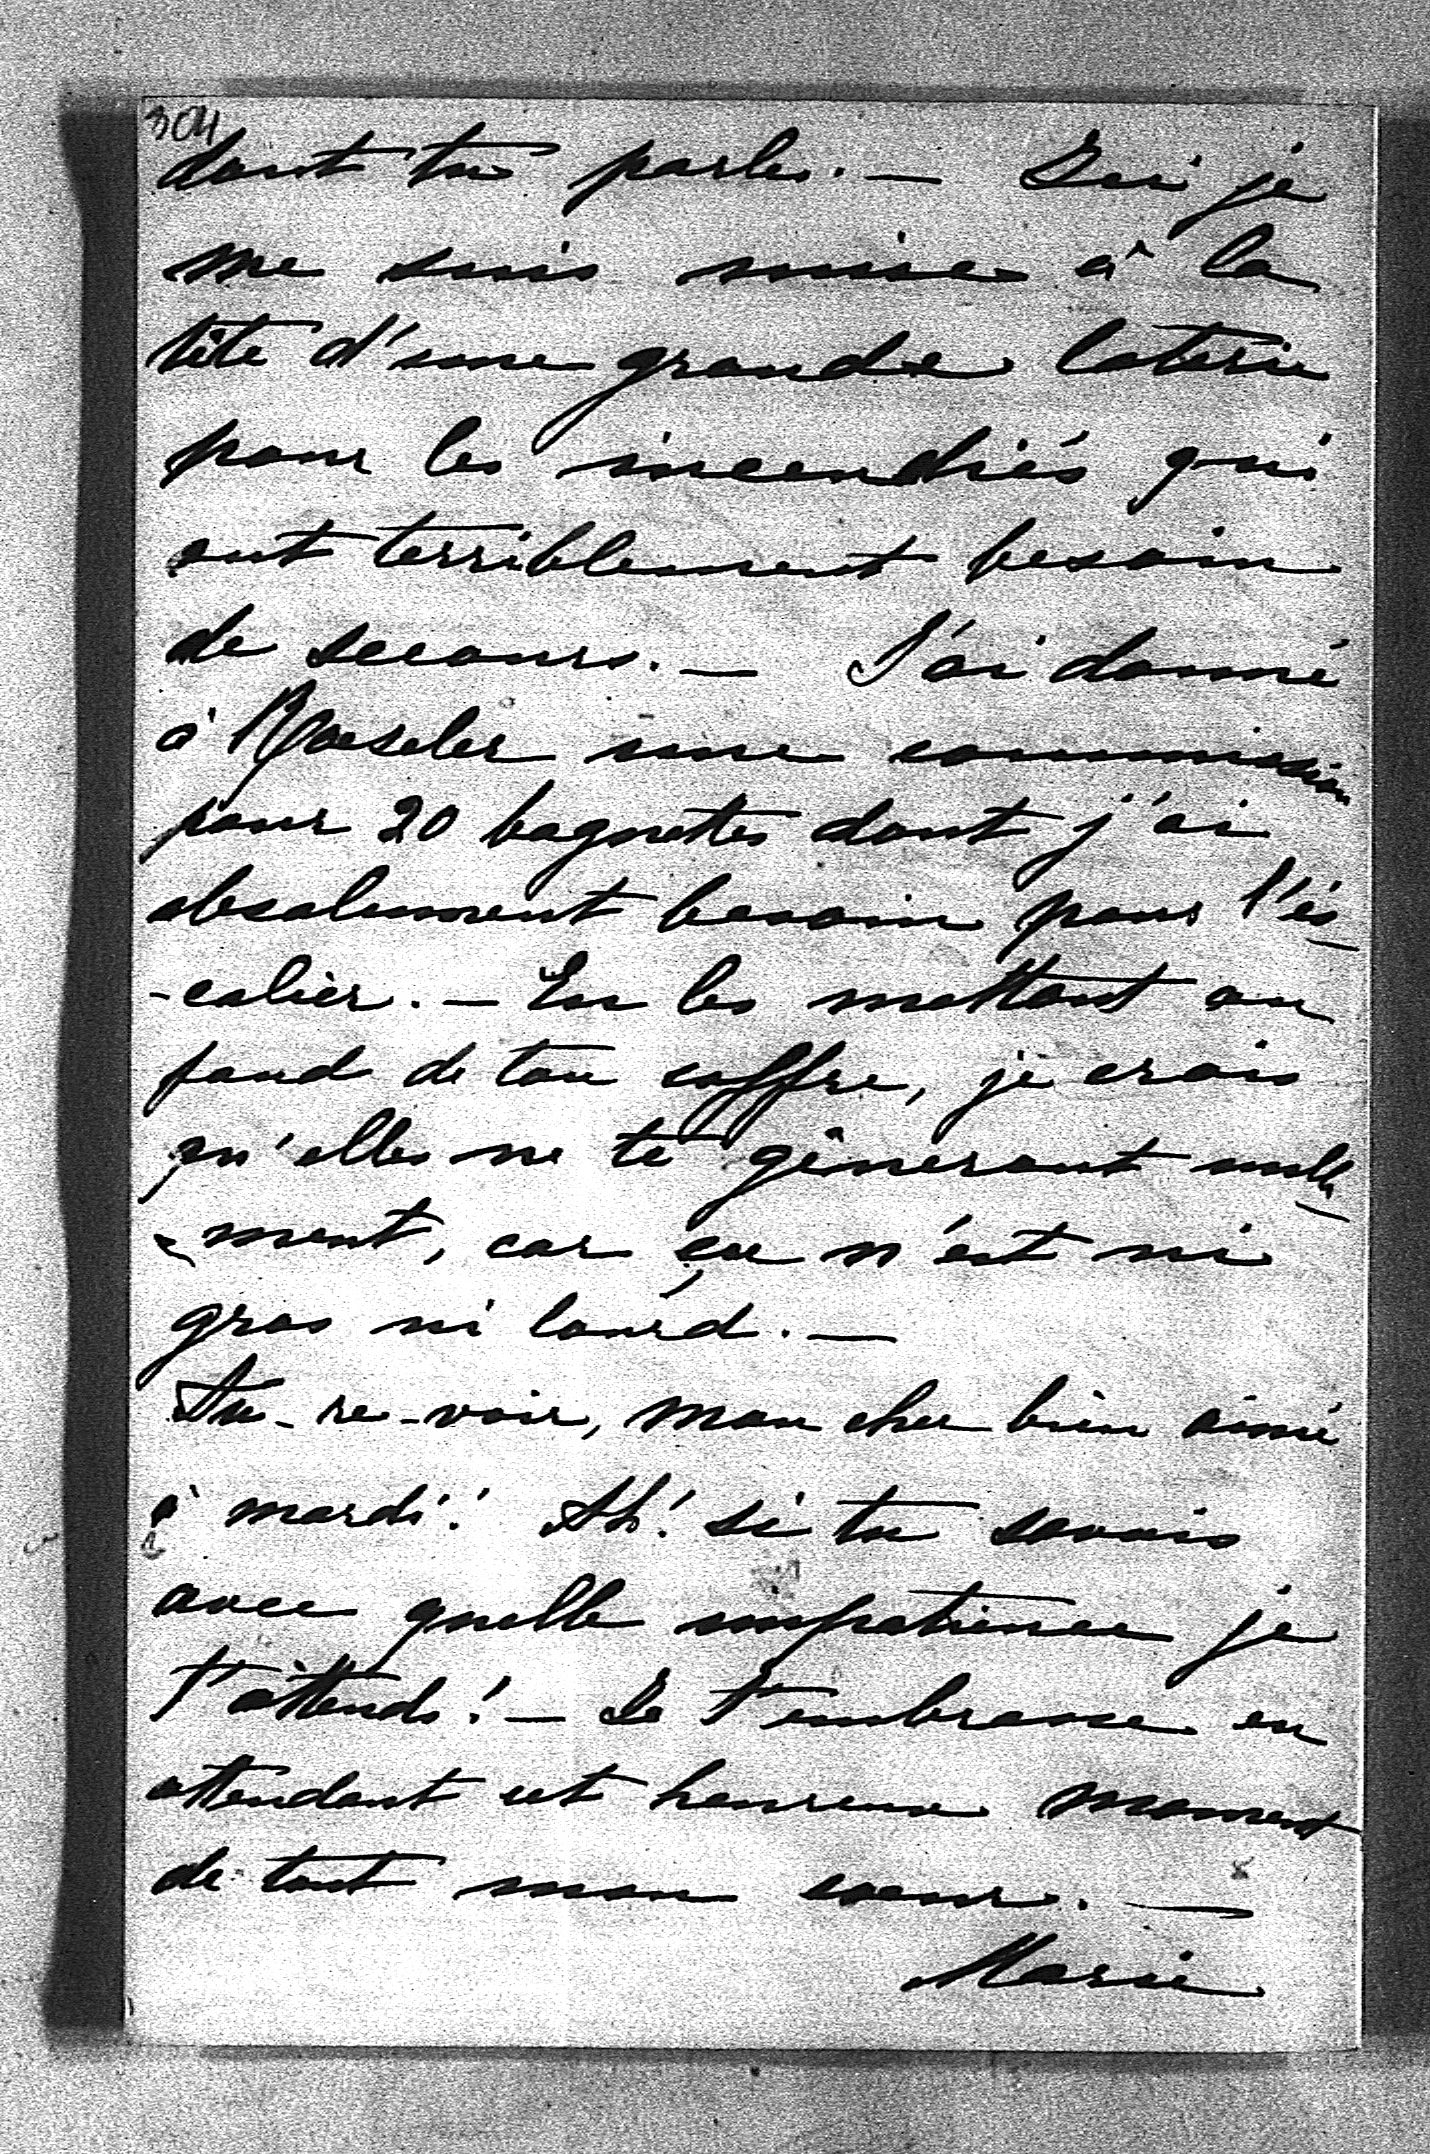 304
dont tu parles. — Ici je
me suis mise à la
tête d'une grande loterie
pour les incendiés qui
ont terriblement besoin
de secours. — J'ai donné
à Roeseler une commission
pour 20 bagnettes dont j'ai
absolument besoin pour l'es-
-calier. — En les mettant au
fond de ton coffre, je crois
qu'elles ne te gèneront nulle-
-ment, car ça n'est ni
gros ni lourd. —
Au-re-voir, mon cher bien aimé
à mardi! Ah! si tu savais
avec quelle impatience je
t'attends! — Je t'embrasse en
attendant cet heureux moment
de tout mon coeur. —
Marie